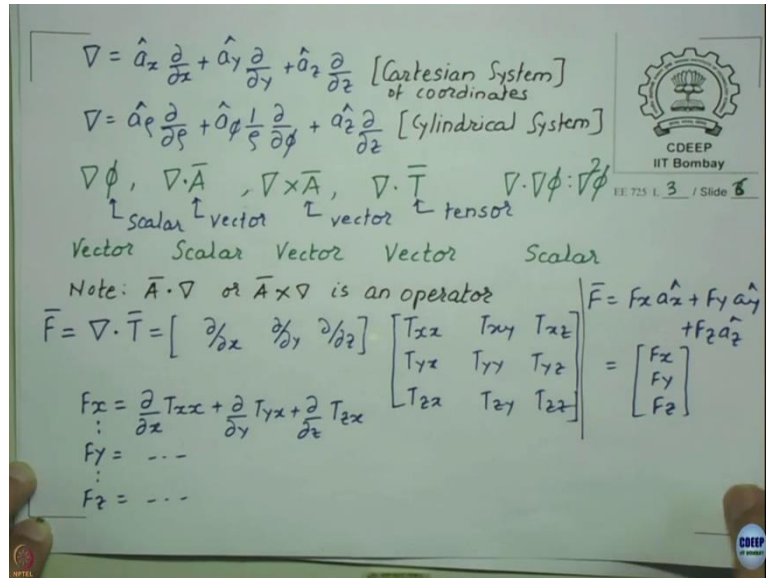 ∇ = âx ∂/∂x + ây ∂/∂y + âz ∂/∂z [Cartesian System]
of coordinates
∇ = âρ ∂/∂ρ + âϕ 1/ρ ∂/∂ϕ + âz ∂/∂z [Cylindrical System]
CDEEP
IIT Bombay
EE 725 L 3 / Slide 6
∇ϕ, ∇·A̅, ∇×A̅, ∇·T̅ ∇·∇ϕ : ∇²ϕ
Scalar vector vector tensor
Vector Scalar Vector Vector Scalar
Note: A̅·∇ or A̅×∇ is an operator
F̅ = ∇·T̅ = [ ∂/∂x ∂/∂y ∂/∂z ] [Txx Txy Txz
Tyx Tyy Tyz
Tzx Tzy Tzz]
Fx = ∂/∂x Txx + ∂/∂y Tyx + ∂/∂z Tzx
:
Fy = ---
:
Fz = ---
F̅ = Fx âx + Fy ây
+ Fz âz
= [Fx
Fy
Fz]
NPTEL
CDEEP
IIT BOMBAY